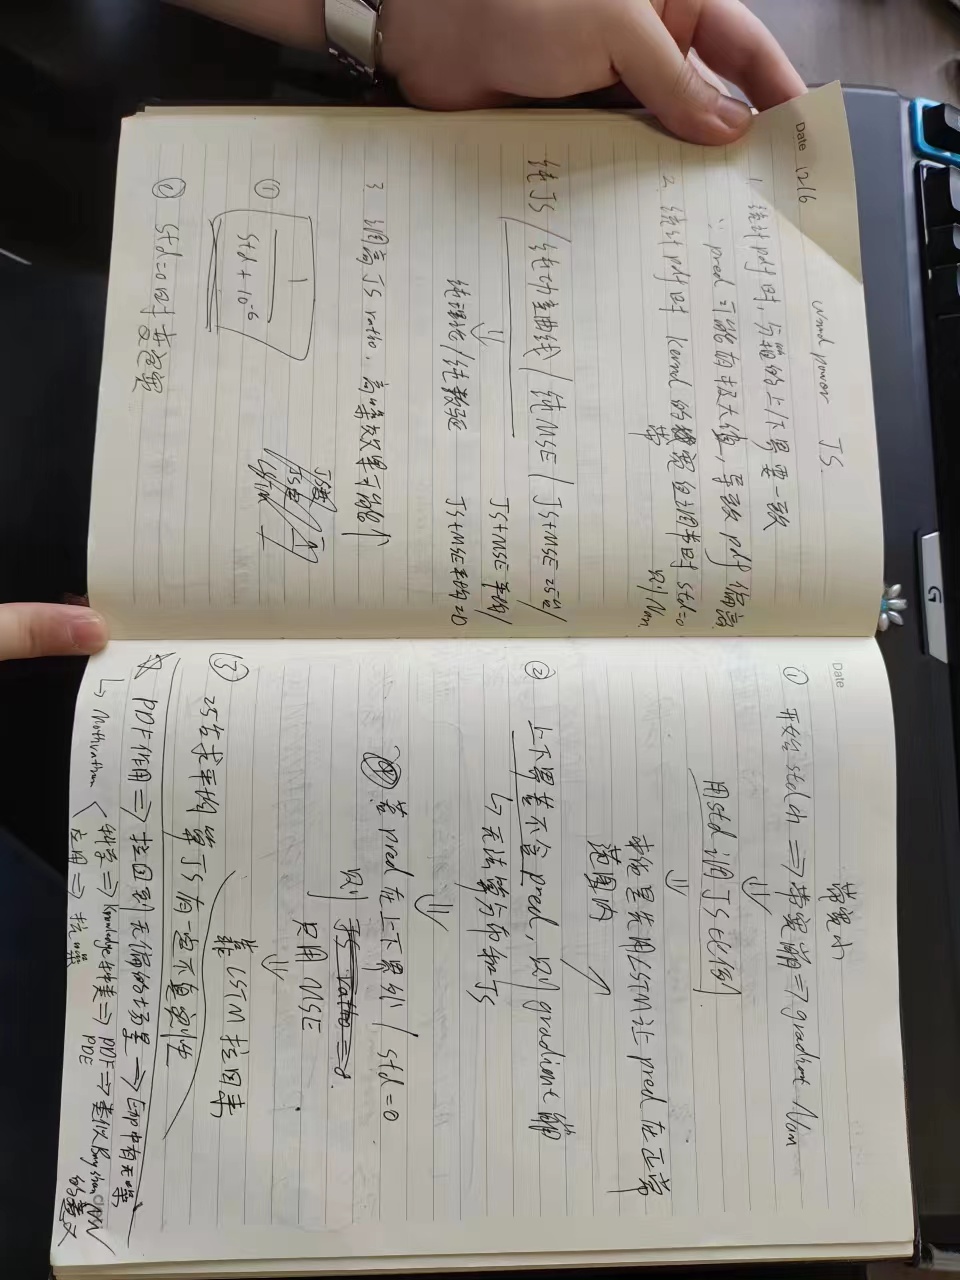 Date 12/6
wind power JS.
1. 统计pdf时，分箱的上/下界要一致
∵ pred可能有极大值，导致pdf偏离
2. 统计pdf时 Kernel的宽自调节时 std=0
带 则Nan.
纯JS/纯功率曲线/纯MSE/JS+MSE 25台/
JS+MSE 平均/
⇓
纯理论/纯数驱 JS+MSE平均 20
3. 调高JS ratio. 高噪效果可能↑
JS
JS
LSTM
① 1
std + 10⁻⁶
② std=0时 变宽
G
Date
带宽小
① 开始std小 ⇒ 带宽崩 ⇒ gradient Nan
⇓
用std调JS比例
⇓
本质是先用LSTM让pred在正常
范围内
② 上下界若不含pred，则gradient崩
↳ 无法算分布和JS
⇓
若pred在上下界外 / std=0
则 JS ratio = 0.
只用MSE
⇓
靠LSTM拉回来
③ 25台求平均算JS有一定不真实性
PDF作用 ⇒ 拉回到无偏的场景 → Exp中有无噪
↳ Motivation 科学 ⇒ Knowledge种类 ⇒ PDF ⇒ 类似Bayesian NN
PDE 的意义
应用 ⇒ 抗噪